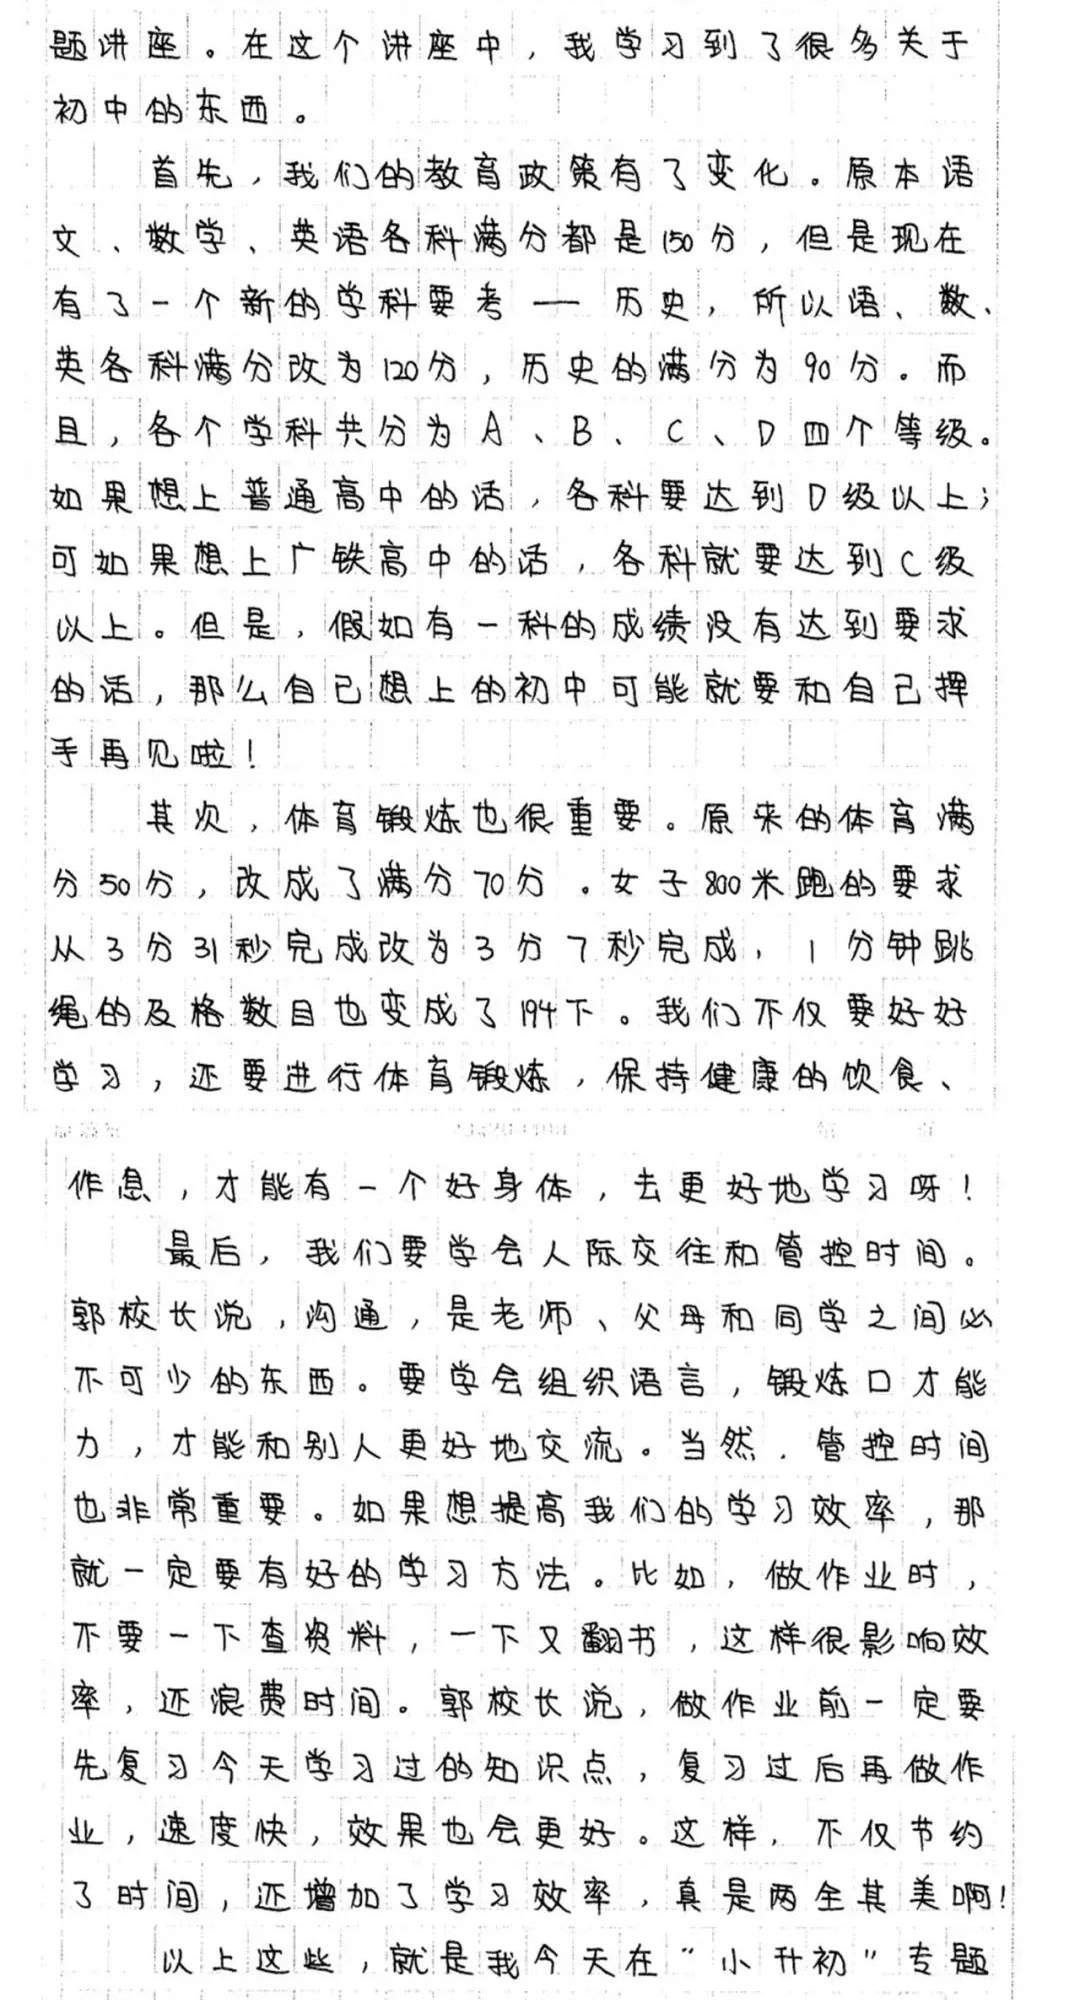 题讲座。在这个讲座中，我学习到了很多关于
初中的东西。
首先，我们的教育政策有了变化。原本语
文、数学、英语各科满分都是150分，但是现在
有了一个新的学科要考——历史，所以语、数、
英各科满分改为120分，历史的满分为90分。而
且，各个学科共分为A、B、C、D四个等级。
如果想上普通高中的话，各科要达到D级以上；
可如果想上广铁高中的话，各科就要达到C级
以上。但是，假如有一科的成绩没有达到要求
的话，那么自己想上的初中可能就要和自己挥
手再见啦！
其次，体育锻炼也很重要。原来的体育满
分50分，改成了满分70分。女子800米跑的要求
从3分31秒完成改为3分7秒完成，1分钟跳
绳的及格数目也变成了194下。我们不仅要好好
学习，还要进行体育锻炼，保持健康的饮食、
作息，才能有一个好身体，去更好地学习呀！
最后，我们要学会人际交往和管控时间。
郭校长说，沟通，是老师、父母和同学之间必
不可少的东西。要学会组织语言，锻炼口才能
力，才能和别人更好地交流。当然，管控时间
也非常重要。如果想提高我们的学习效率，那
就一定要有好的学习方法。比如，做作业时，
不要一下查资料，一下又翻书，这样很影响效
率，还浪费时间。郭校长说，做作业前一定要
先复习今天学习过的知识点，复习过后再做作
业，速度快，效果也会更好。这样，不仅节约
了时间，还增加了学习效率，真是两全其美啊！
以上这些，就是我今天在“小升初”专题